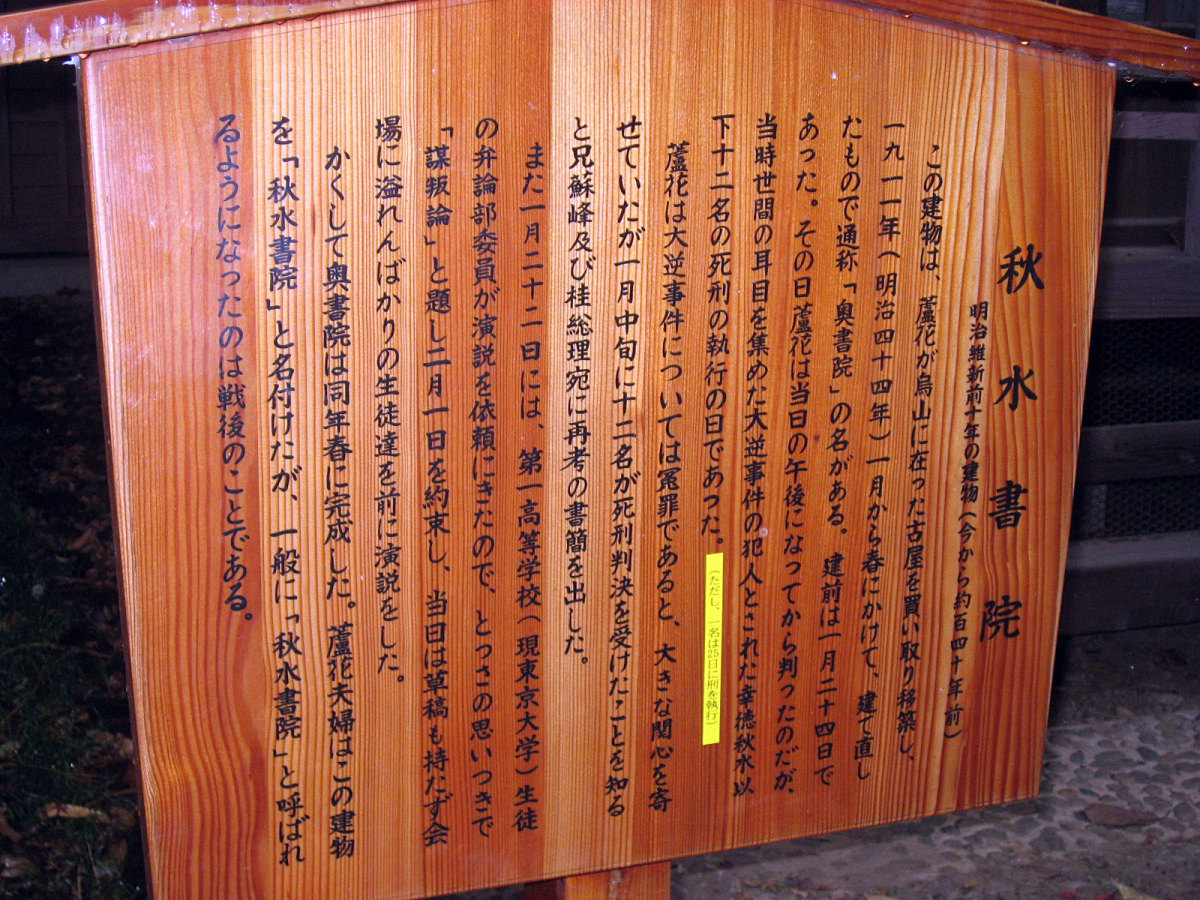 秋水書院
明治維新前十年の建物（今から約百四十年前）
この建物は、蘆花が烏山に在った古屋を買い取り移築し、
一九一一年（明治四十四年）一月から春にかけて、建て直し
たもので通称「奥書院」の名がある。建前は一月二十四日で
あった。その日蘆花は当日の午後になってから判つたのだが、
当時世間の耳目を集めた大逆事件の犯人とされた幸徳秋水以
下十二名の死刑の執行の日であつた。
（ただし、一名は25日に刑を執行）
蘆花は大逆事件については冤罪であると、大きな関心を寄
せていたが一月中旬に十二名が死刑判決を受けたことを知る
と兄蘇峰及び桂総理宛に再考の書簡を出した。
また一月二十二日には、第一高等学校（現東京大学）生徒
の弁論部委員が演説を依頼にきたので、とっさの思いつきで
「謀叛論」と題し二月一日を約束し、当日は草稿も持たず会
場に溢れんばかりの生徒達を前に演説をした。
かくして奥書院は同年春に完成した。蘆花夫婦はこの建物
を「秋水書院」と名付けたが、一般に「秋水書院」と呼ばれ
るようになったのは戦後のことである。